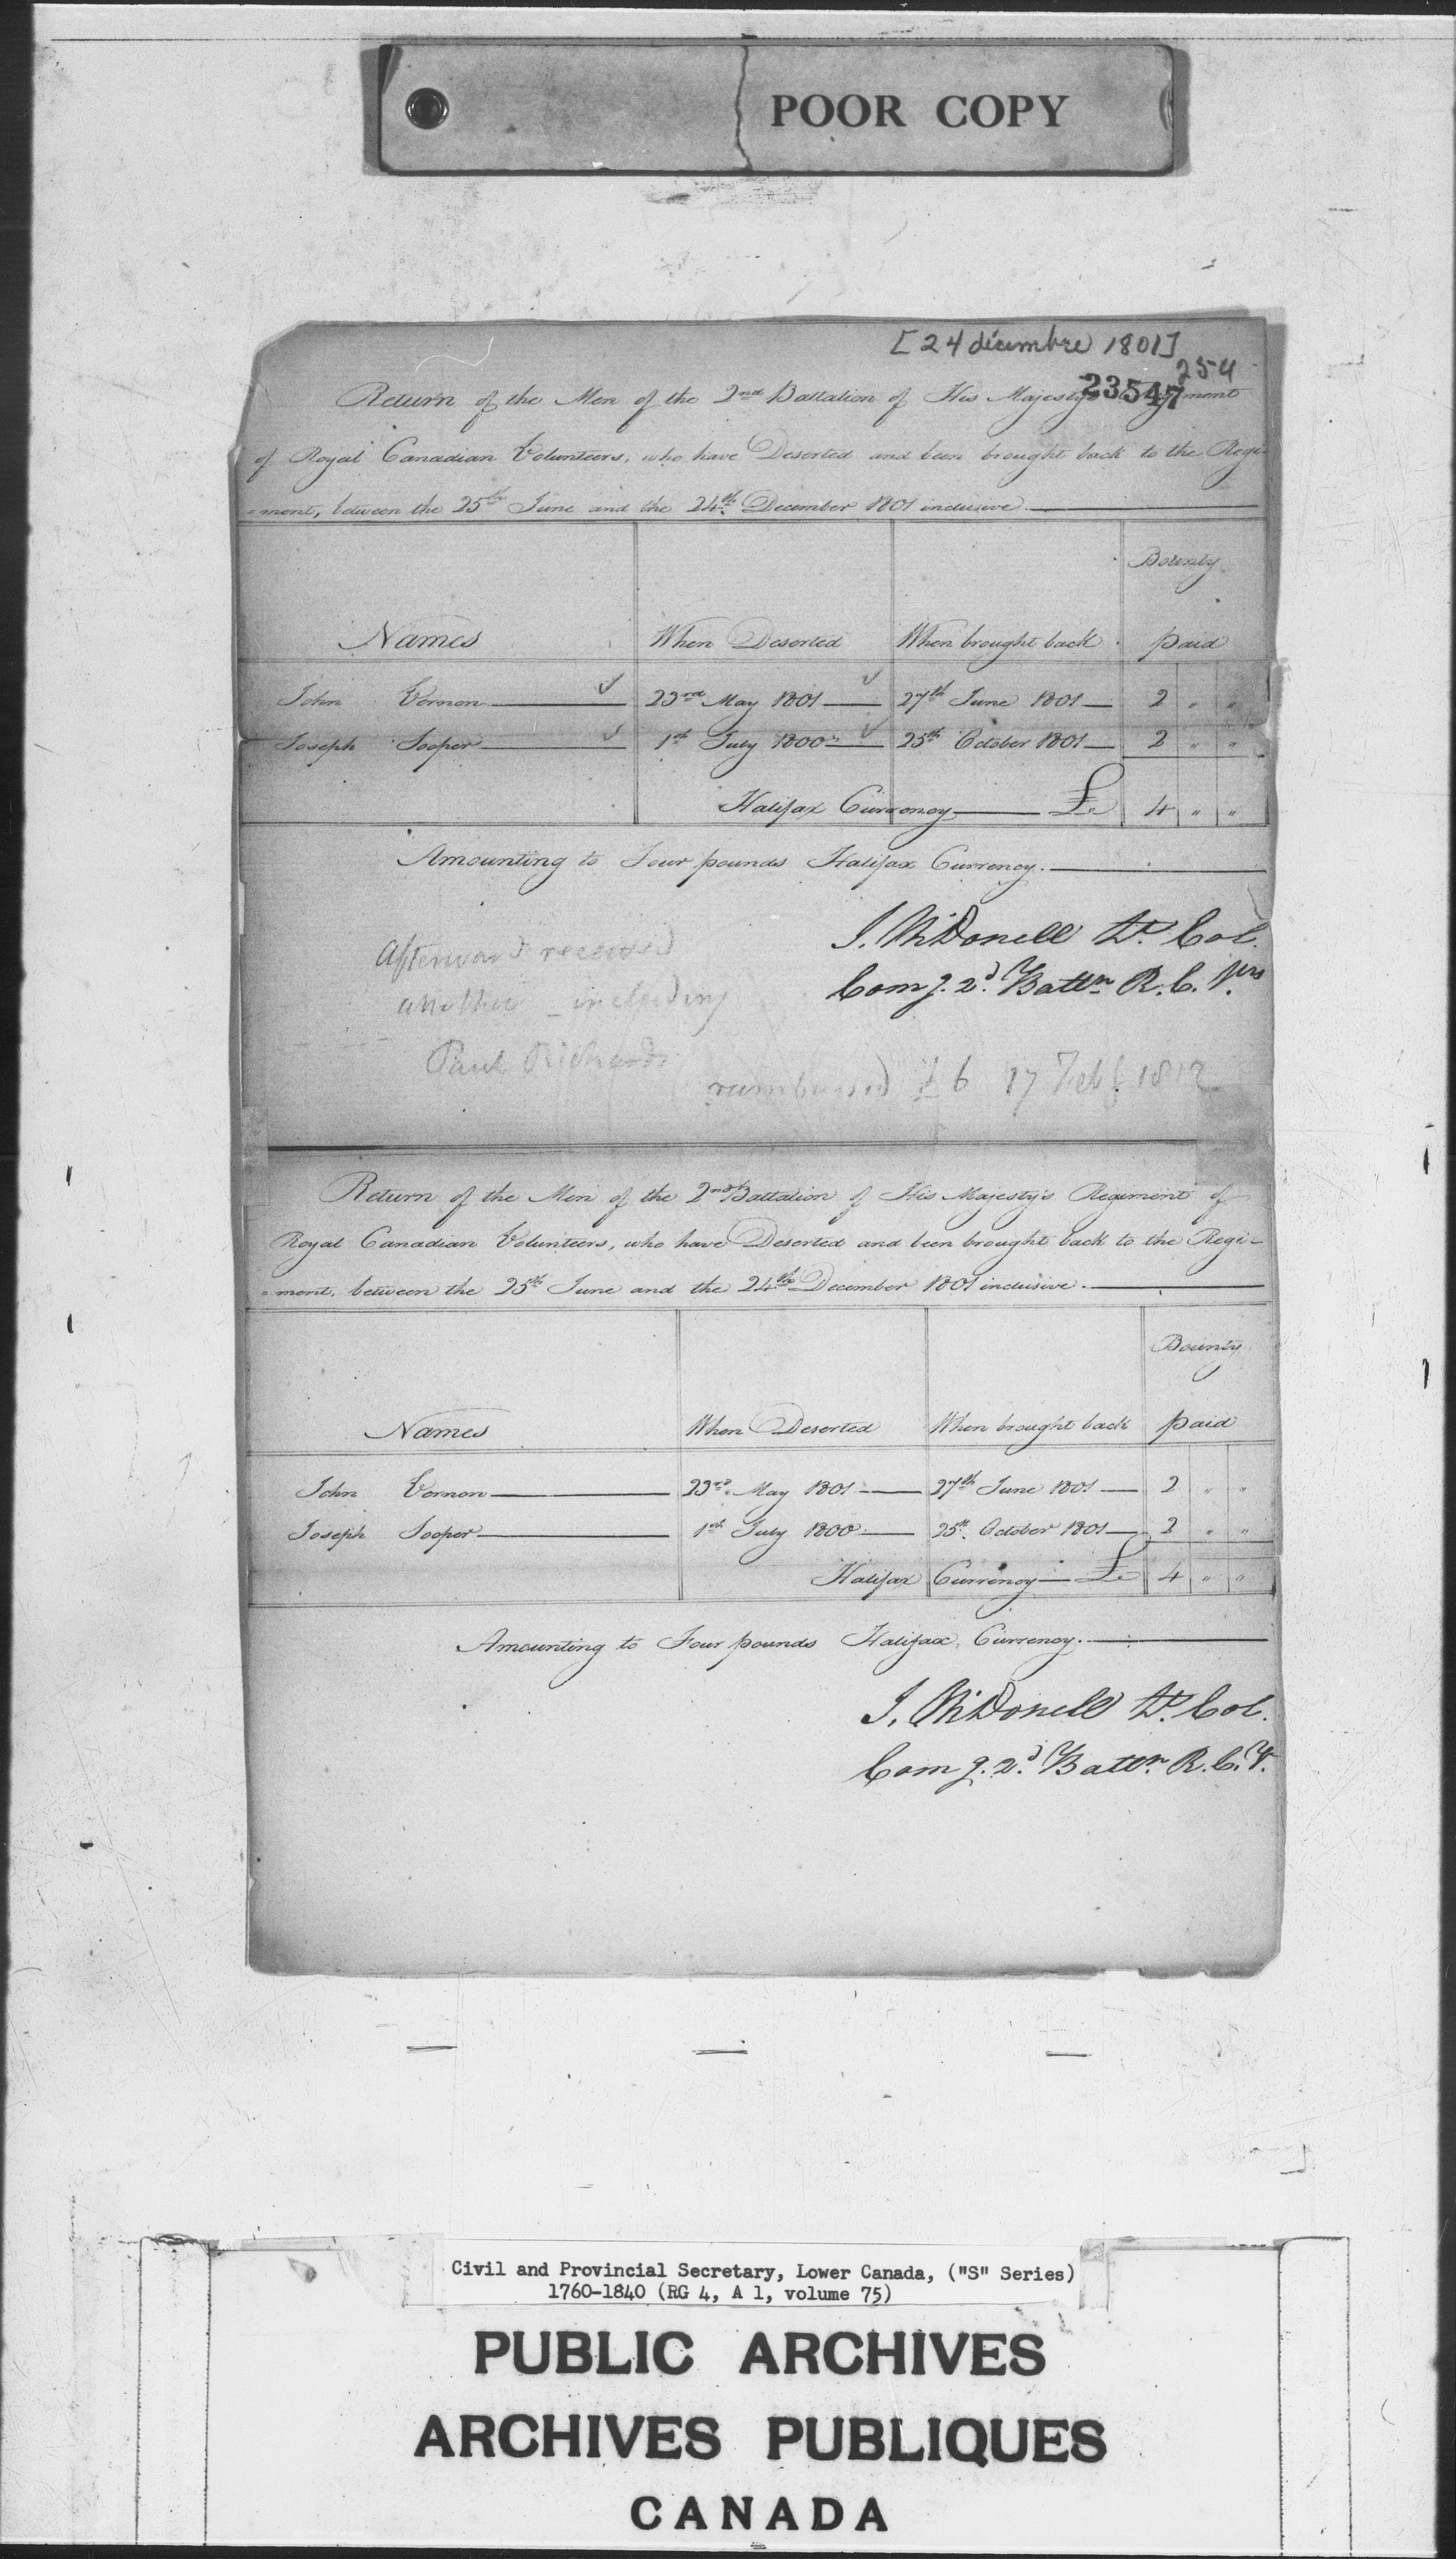 POOR COPY
[24 décembre 1801]
254
23547
Return of the Men of the 2nd Battalion of His Majesty's Regiment
of Royal Canadian Volunteers, who have Deserted and been brought back to the Regi-
ment, between the 25th June and the 24th December 1801 inclusive.
Bounty
Names When Deserted When brought back paid
John Vernon 23rd May 1801 27th June 1801 2 " "
Joseph Sooper 1st July 1800 25th October 1801 2 " "
Halifax Currency £ 4 " "
Amounting to Four pounds Halifax Currency.
J. McDonell Lt. Col.
Comg. 2d. Battn R. C. Vrs
Afterward received
another including
Paul Richard
£6 17 Feby 1812
Return of the Men of the 2nd Battalion of His Majesty's Regiment of
Royal Canadian Volunteers, who have Deserted and been brought back to the Regi-
ment, between the 25th June and the 24th December 1801 inclusive.
Bounty
Names When Deserted When brought back paid
John Vernon 23rd May 1801 27th June 1801 2 " "
Joseph Sooper 1st July 1800 25th October 1801 2 " "
Halifax Currency £ 4 " "
Amounting to Four pounds Halifax Currency.
J. McDonell Lt. Col.
Comg. 2d. Battn. R. C. V.
Civil and Provincial Secretary, Lower Canada, ("S" Series)
1760-1840 (RG 4, A 1, volume 75)
PUBLIC ARCHIVES
ARCHIVES PUBLIQUES
CANADA